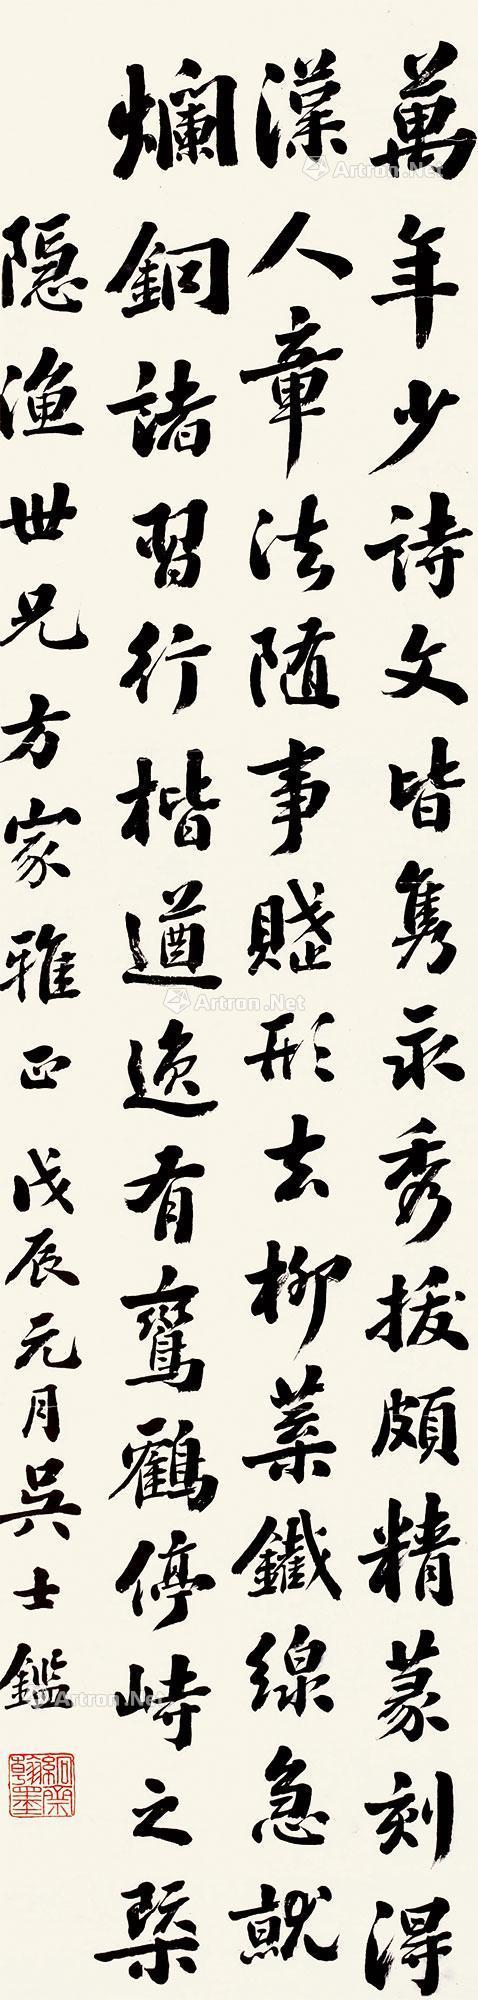 萬年少詩文皆雋永秀拔頗精篆刻得
漢人章法隨事賦形去柳葉鐵線急就
爛銅諸習行楷遒逸有鸞鶴停峙之槩
隱漁世兄方家雅正 戊辰元月吳士鑑
絅齋翰墨
Artron.Net
Artron.Net
Artron.Net
Artron.Net